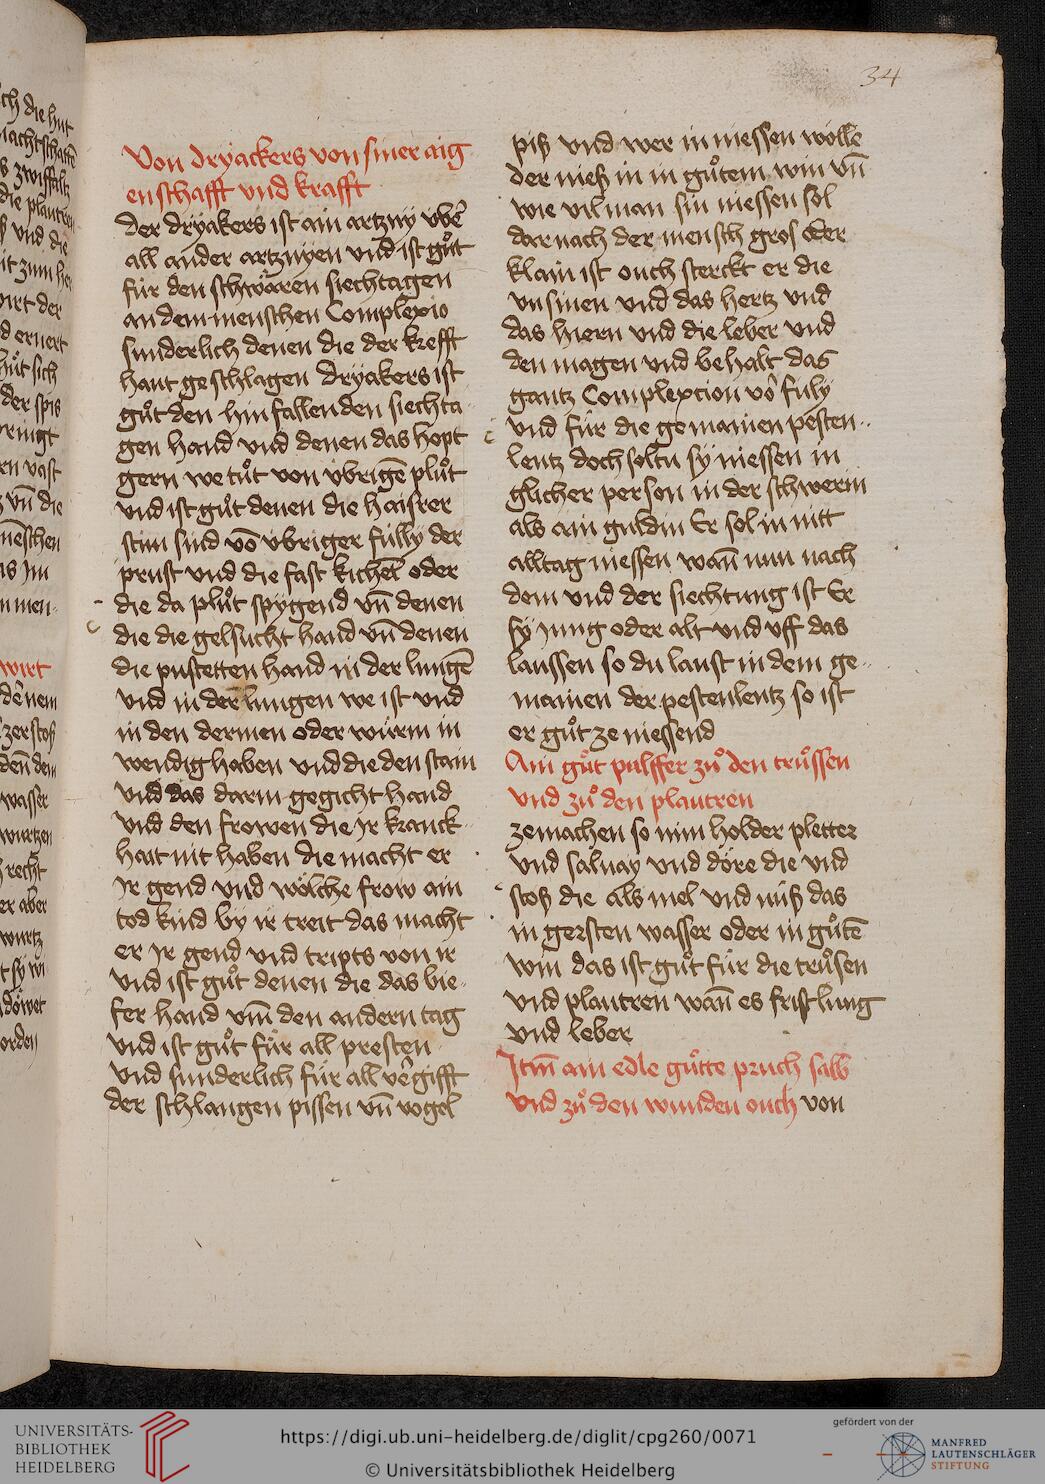 34
Von dryackers von siner aig
enschafft vnd krafft
der dryakers ist ain artzny vb̄e
all ander artznyen vnd ist gůt
für den schwären siechtagen
an dem menschen Complexio
sunderlich denen die der krefft
hant geschlagen dryakers ist
gůt den hinfallenden siechta
gen hand vnd denen das hopt
gern we tůt von übrigē plůt
vnd ist gůt denen die haisrer
stim sind vō vbriger fully der
prust vnd die fast kichen̄ oder
die da plůt spygend vn̄ denen
die die gelsucht hand vn̄ denen
die pustetten hand in der lungē
vnd in der lungen we ist vnd
in den dermen oder würm in
wendig haben vnd die den stain
vnd das darm gegicht hand
vnd den frowen die Jr kranck
hait nit haben die macht er
Jr gend vnd wölche frow ain
tod kind by ir treit das macht
er Jr gend vnd tripts von ir
vnd ist gůt denen die das bie
fer hand vm̄ den andern tag
vnd ist gůt für all presten
vnd sunderlich für all v̄egifft
der schlangen pissen vn̄ vogel
piß vnd wer in niessen wölle
der nieß in in gůtem win vn̄
wie vil man sin niessen sol
darnach der mensch gros oder
klain ist ouch sterckt er die
vnsinen vnd das hertz vnd
das hiern vnd die leber vnd
den magen vnd behalt das
gantz Complexcion vō fuly
vnd für die gemainen pesten
lentz doch soltu sy niessen in
glicher person in der schwerin
als ain guldin Er sol in nitt
alltag niessen wan̄ nun nach
dem vnd der siechtung ist Er
sy Jung oder alt vnd vff das
laussen so du laust in dem ge
mainen der pestenlentz so ist
er gůt ze niessend
Ain gůt pulffer zů den trůssen
vnd zů den plautren
ze machen so nim holder pletter
vnd saluay vnd döre die vnd
stoß die als mel vnd nüß das
in gersten wasser oder in gůtē
win das ist gůt für die trůsen
vnd plautren wan̄ es frist lung
vnd leber
Jtm̄ ain edle gůtte pruch salb
vnd zů den wunden ouch von
UNIVERSITÄTS-
BIBLIOTHEK
HEIDELBERG
https://digi.ub.uni-heidelberg.de/diglit/cpg260/0071
© Universitätsbibliothek Heidelberg
gefördert von der
MANFRED
LAUTENSCHLÄGER
STIFTUNG